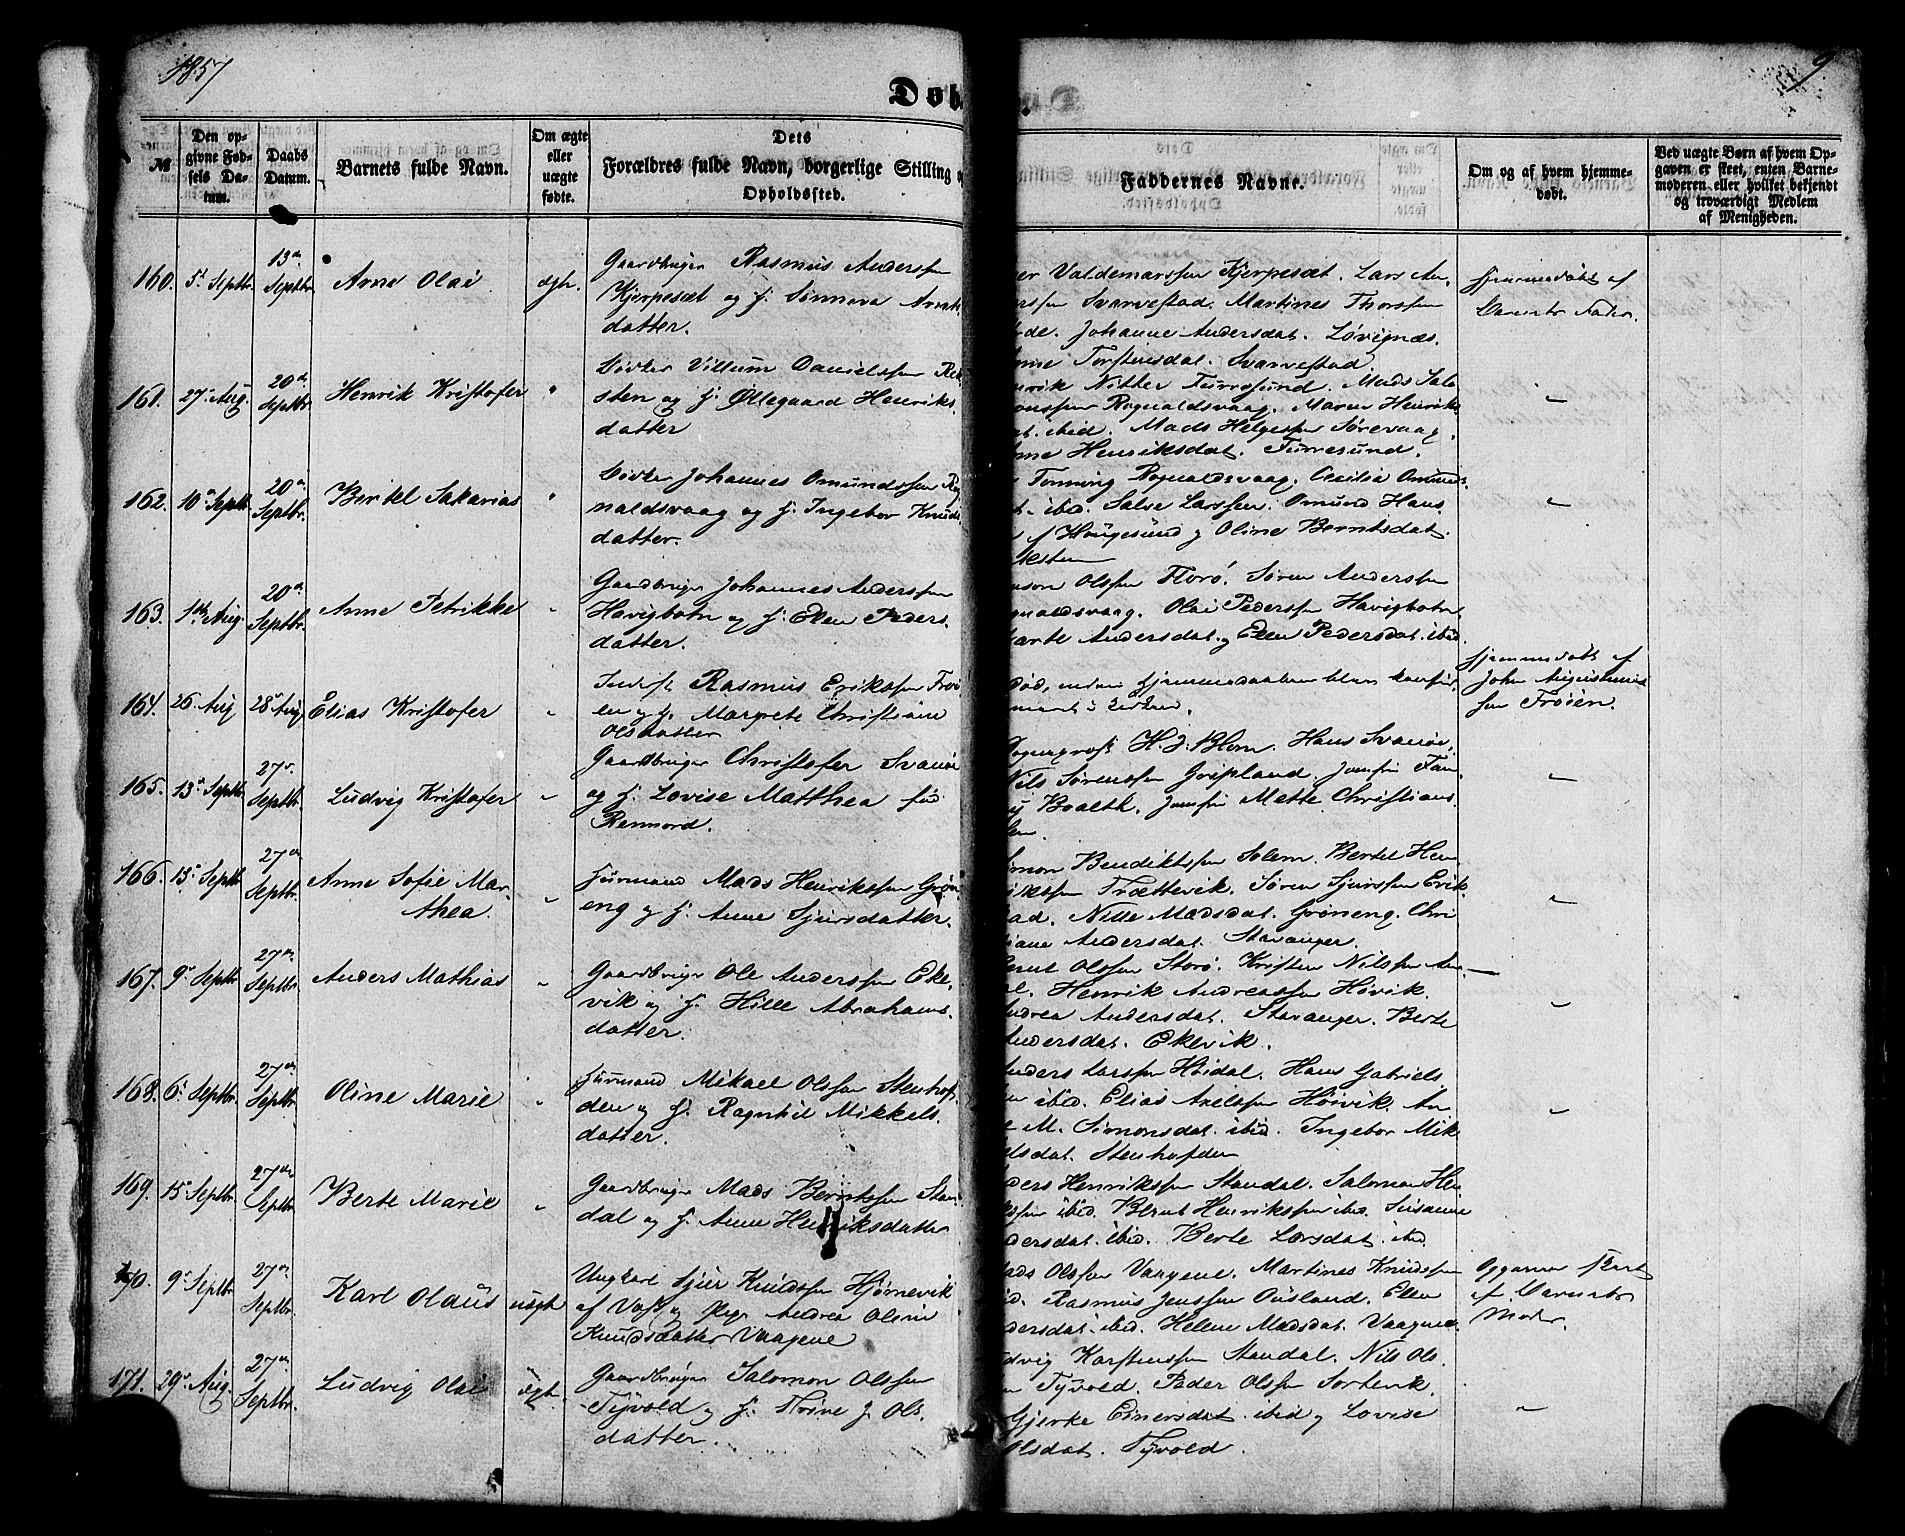 1857
9
Døb
№
Den opgivne Fødsels Datum.
Daabs Datum.
Barnets fulde Navn.
Om ægte eller uægte fødte.
Dets Forældres fulde Navn, borgerlige Stilling
Opholdssted.
Faddernes Navne.
Om og af hvem hjemmedøbt.
Ved uægte Børn af hvem Opgaven er skeet, enten Barnemoderen eller hvilket bekjendt og troværdigt Medlem af Menigheden.
160. 5 Septbr. 13de Septbr. Arne Olai
Gaardbruger Rasmus Anderssen
Kjerpesæt og H. Sønneva Arents
datter.
er Valdemarssen Kjerpesæt. Lars An
Svarvestad. Martines Thorssen
Johanne Andersdat. Løvignæs.
Torstensdat. Svarvestad
Hjemmedøbt af
Barnets Fader.
161. 27 Aug. 20de Septbr. Henrik Kristofer "
Villum Danielssen
sten og H. Øllegaard Henriks
datter
Nitter Turresund. Mads Salo
Rognaldsvaag. Maren Henriks
ibid. Mads Helgessen Sørevaag.
Henriksdat. Turresund.
162. 10 Septbr. 20de Septbr. Bertel Sakarias "
Johannes Omundssen Rog
naldsvaag og H. Ingebor Knuds
datter.
Tonning Rognaldsvaag. Cecilia Omunds
ibid. Salve Larssen. Omund Hans
af Hougesund og Oline Berntsdat.
163. Aug. 20de Septbr. Anne Petrikke
Gaardbruger Johannes Anderssen
Havigbotn og H. Elen Peders
datter.
Olssen Florø. Søren Anderssen
Olai Pederssen Havigbotn.
Andersdat. og Elen Pedersdat. ibid.
164. 26 Aug 28 Aug. Elias Kristofer
Inderst Rasmus Erikssen Frøi
en og H. Margrete Christiane
Olsdatter
død, inden Hjemmedaaben blev konfir
meret i Kirken.
Hjemmedøbt af
John Augustinus
sen Frøien.
165. 13 Septbr. 27de Septbr. Ludvig Kristofer
Gaardbruger Christofer Svanøe
og H. Lovise Matthea fød
Rennord.
Sogneprest H. J. Blom. Hans Svanøe.
Nils Sørenssen Gripland. Jomfru Fan
ny Boalth. Jomfru Mette Christians
166. 15 Septbr. 27de Septbr. Anne Sofie Mar
thea.
Huusmand Mads Henrikssen Grøn
eng og H. Anne Sjursdatter.
Simon Bendiktssen Solem. Bertel Hen
rikssen Trættevik. Søren Sjurssen Erik
stad. Nille Madsdat. Grøneng. Chri
stiane Andersdat. Stavanger.
167. 9 Septbr. 27de Septbr. Anders Mathias
Gaardbruger Ole Anderssen Eke
vik og H. Hille Abrahams
datter.
Bernt Olssen Storø. Kristen Nilssen
Henrik Andreassen Høvik.
Andrea Andersdat. Stavanger. Berte
Andersdat. Ekevik.
168. 6 Septbr. 27de Septbr. Oline Marie
Huusmand Mikael Olssen Stenhof
den og H. Ragnhil Mikkels
datter.
Anders Larssen Høidal. Hans Gabriels
ibid. Elias Axelssen Høivik. An
M. Simonsdat. ibid. Ingebor Mik
kelsdat. Stenhofden
169. 15 Septbr. 27de Septbr. Berte Marie
Gaardbruger Mads Berntssen Stan
dal og H. Anne Henriksdatter
Anders Henrikssen Standal. Salomon Hen
rikssen ibid. Bernt Henrikssen ibid. Susanne
Andersdat. ibid. Berte Larsdat. ibid.
170. 9 Septbr. 27de Septbr. Karl Olaus uægt
Ungkarl Sjur Knudssen Hjørnevik
af Voss og Pige Andrea Oline
Knudsdatter Vaagene
Mads Olssen Vaagene. Martines Knudssen
Rasmus Jenssen Ousland. Elen
Andersdat. ibid. Helene Madsdat. Vaagene.
Opgaven skeet
af Barnets
Moder.
171. 29 Aug. 27de Septbr. Ludvig Olai ægt
Gaardbruger Salomon Olssen
Tyvold og H. Trine J. Ols
datter.
Ludvig Karstenssen Standal. Nils Ols
Tyvold. Peder Olssen Sortevik.
Gjerke Einersdat. ibid og Lovise
Olsdat. Tyvold.